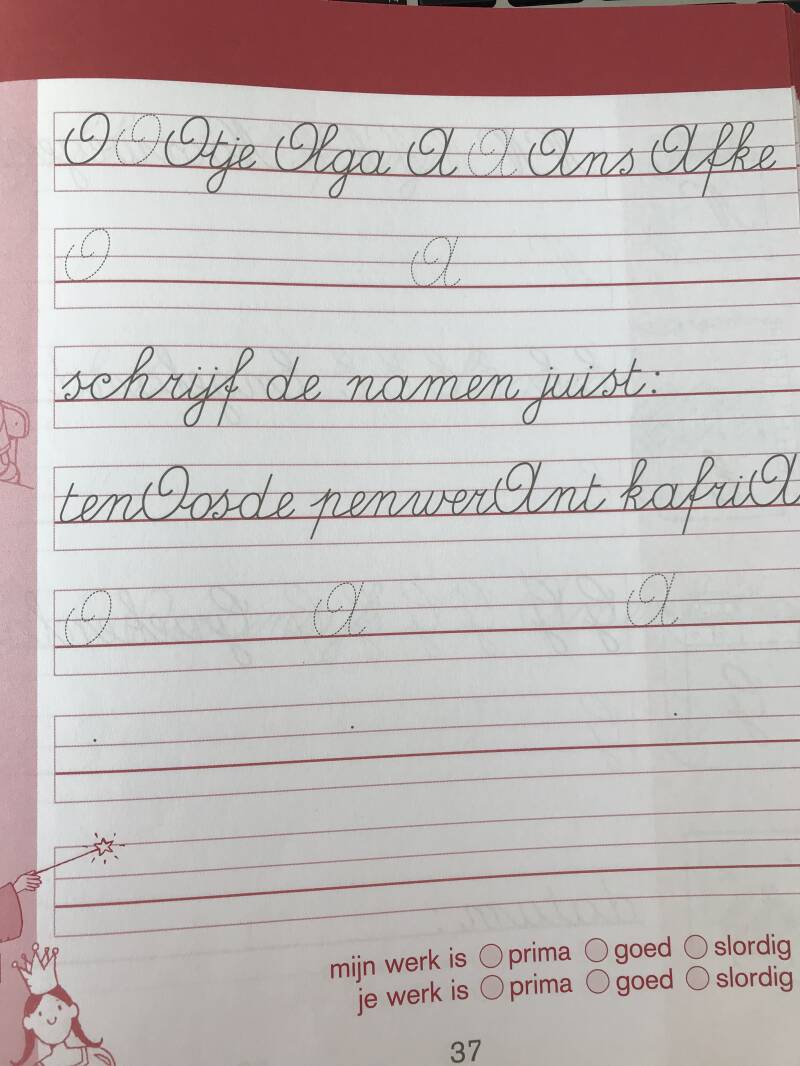 O O Otje Olga A A Ans Afke
O A
schrijf de namen juist:
tenOosde penwerAnt kafriA
O A A
mijn werk is prima goed slordig
je werk is prima goed slordig
37